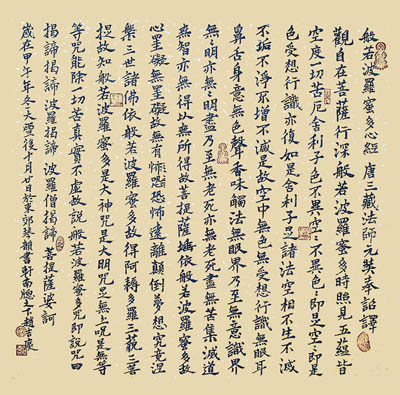 般若波羅蜜多心經 唐三藏法師玄奘奉詔譯
觀自在菩薩行深般若波羅蜜多時照見五蘊皆
空度一切苦厄舍利子色不異空空不異色色即是空空即是
色受想行識亦復如是舍利子是諸法空相不生不滅
不垢不淨不增不減是故空中無色無受想行識無眼耳
鼻舌身意無色聲香味觸法無眼界乃至無意識界
無無明亦無無明盡乃至無老死亦無老死盡無苦集滅道
無智亦無得以無所得故菩提薩埵依般若波羅蜜多故
心罣礙無罣礙故無有恐怖遠離顛倒夢想究竟涅
槃三世諸佛依般若波羅蜜多故得阿耨多羅三藐三菩
提故知般若波羅蜜多是大神咒是大明咒是無上咒是無等
等咒能除一切苦真實不虛故說般若波羅蜜多咒即說咒曰
揭諦揭諦波羅揭諦波羅僧揭諦菩提薩婆訶
歲在甲午年冬大雪後十月廿日於東郊琴韻書軒南窗之下趙